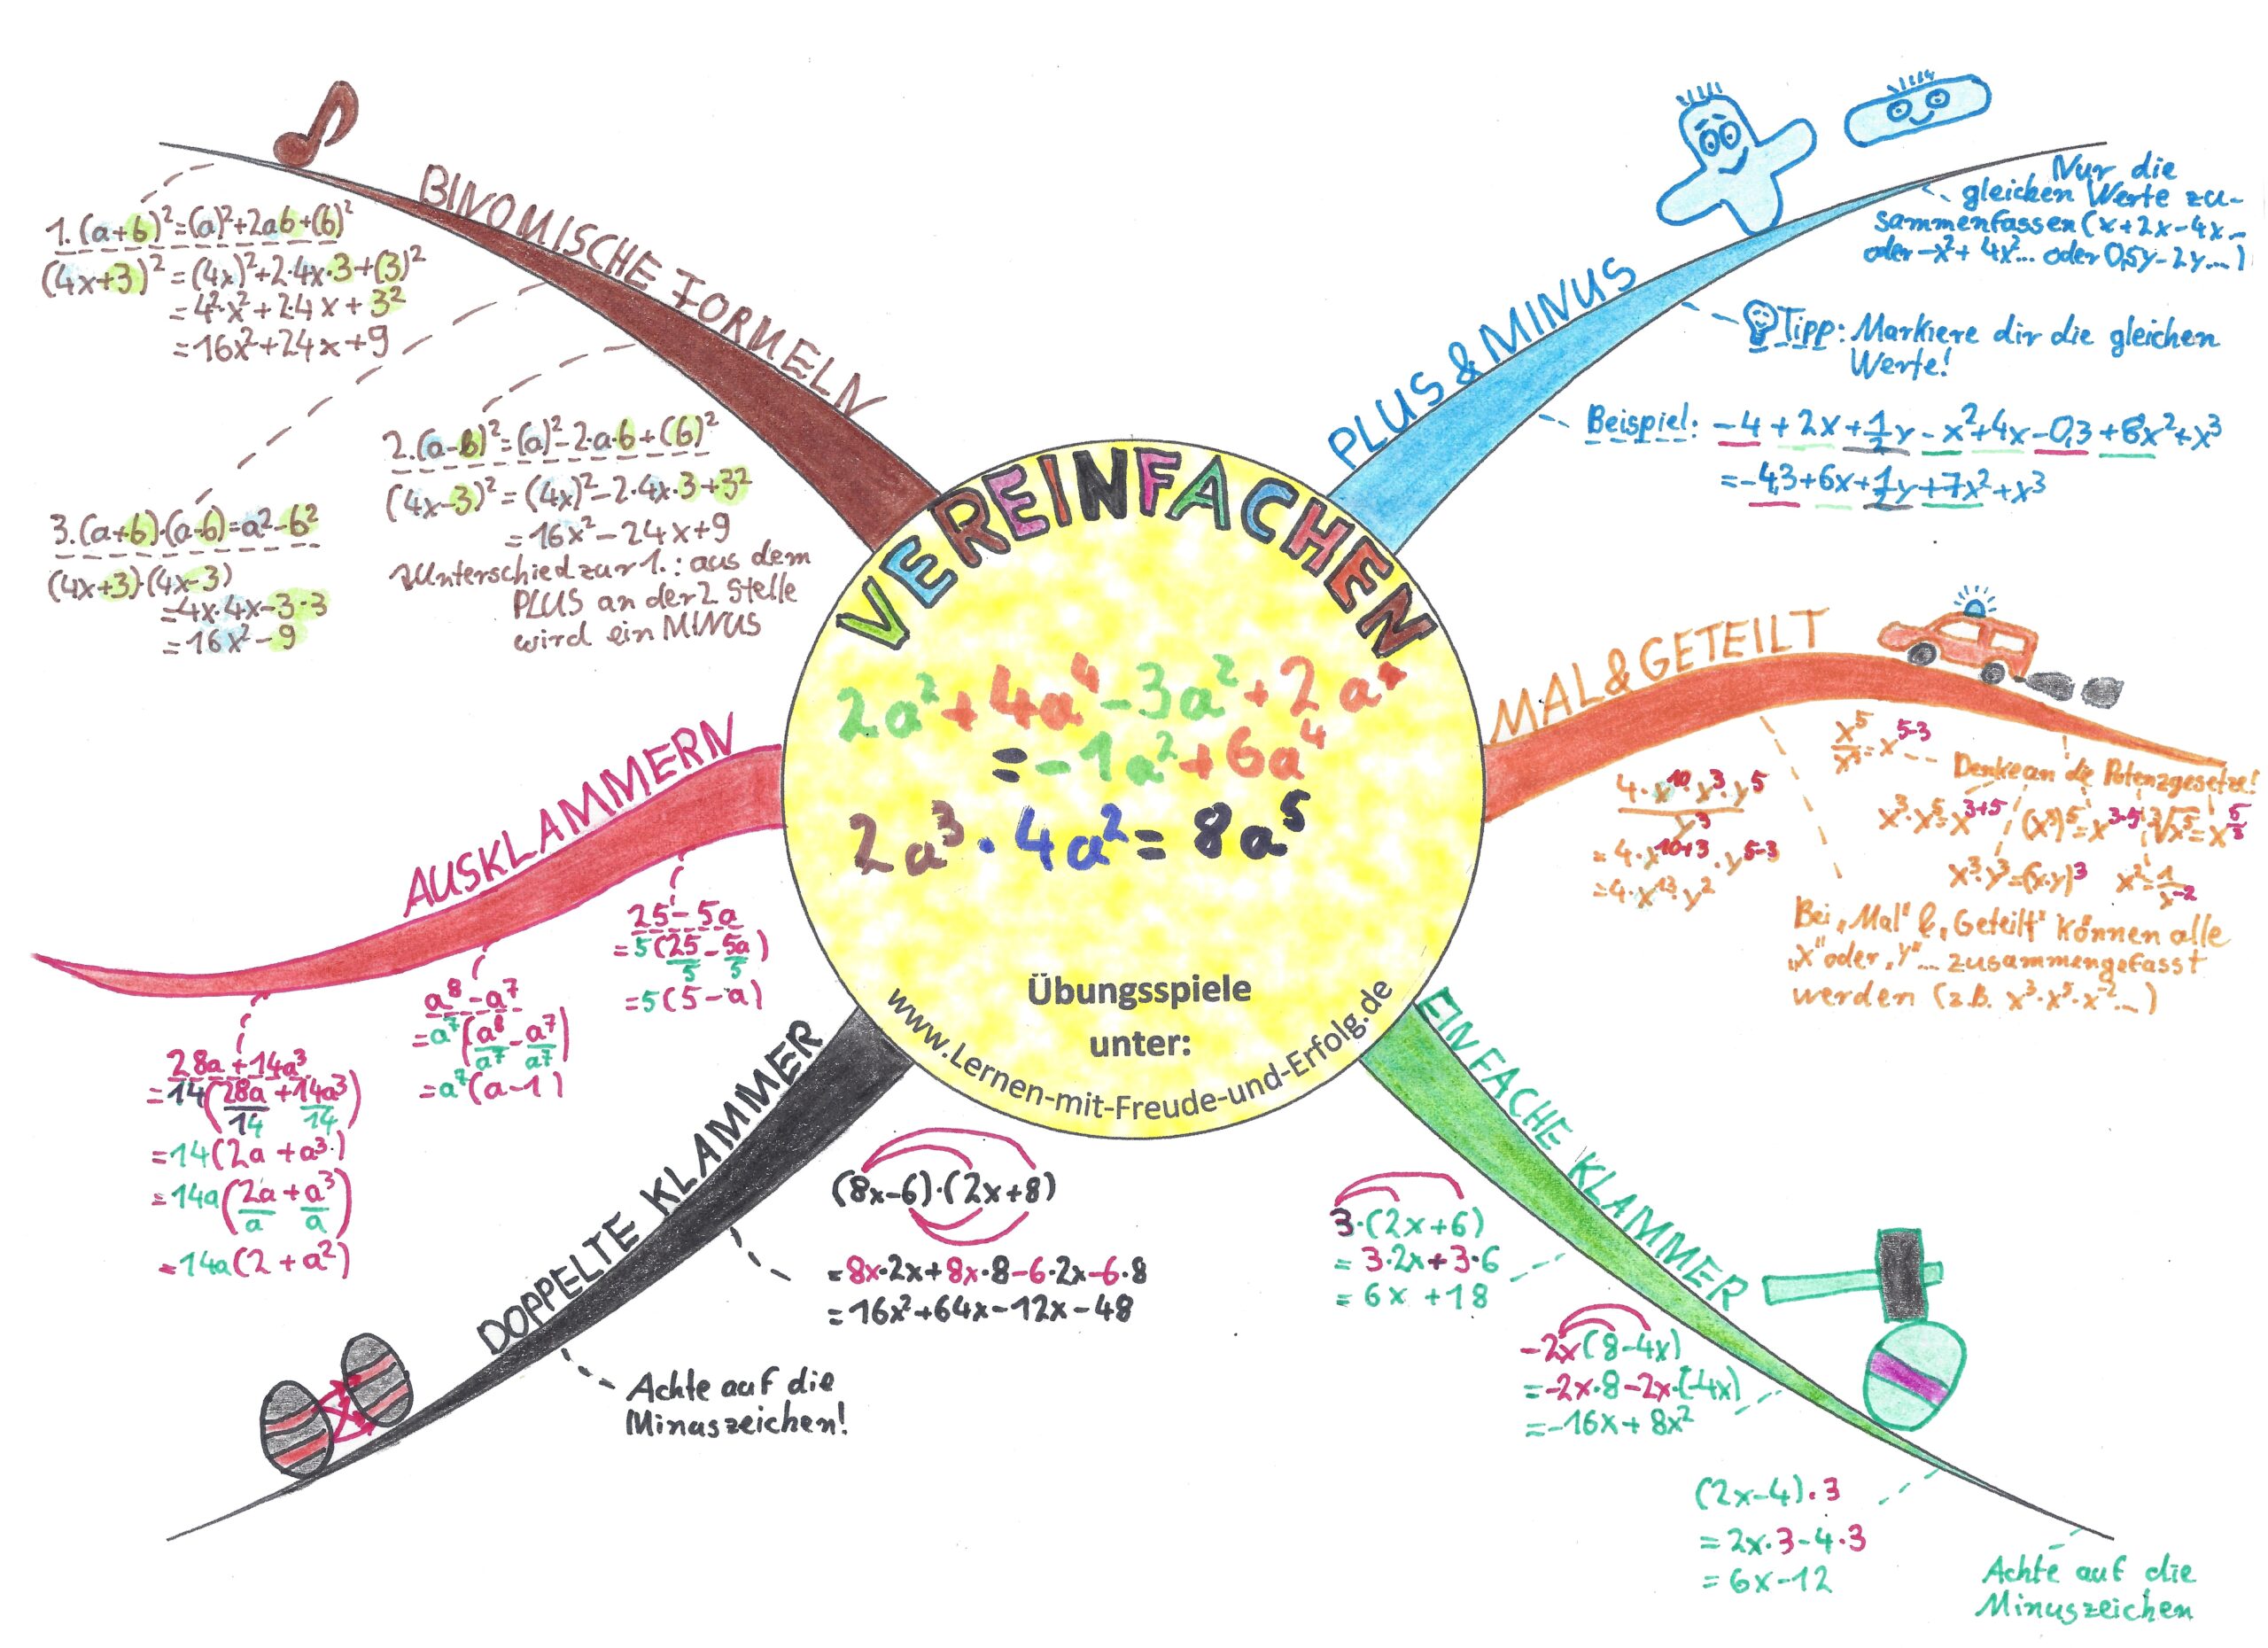 VEREINFACHEN
2a²+4a⁴-3a²+2a⁴
=-1a²+6a⁴
2a³·4a²=8a⁵
Übungsspiele
unter:
www.Lernen-mit-Freude-und-Erfolg.de
BINOMISCHE FORMELN
1.(a+b)²=(a)²+2ab+(b)²
(4x+3)²=(4x)²+2·4x·3+(3)²
=4²·x²+2·4x+3²
=16x²+24x+9
2.(a-b)²=(a)²-2·a·b+(b)²
(4x-3)²=(4x)²-2·4x·3+3²
=16x²-24x+9
Unterschied zur 1.: aus dem
PLUS an der 2 Stelle
wird ein MINUS
3.(a+b)·(a-b)=a²-b²
(4x+3)·(4x-3)
=4x·4x-3·3
=16x²-9
PLUS & MINUS
Nur die
gleichen Werte zu-
sammenfassen (x+2x-4x...
oder -x²+4x²... oder 0,5y-2y...)
Tipp: Markiere dir die gleichen
Werte!
Beispiel: -4+2x+1/2y-x²+4x-0,3+8x²+x³
=-4,3+6x+1/2y+7x²+x³
MAL&GETEILT
x⁵/x³=x⁵⁻³
Denke an die Potenzgesetze!
x³·x⁵=x³⁺⁵ (x³)⁵=x³·⁵ ³√x⁵=x^5/3
x³·y³=(x·y)³ x²=1/x⁻²
4·x¹⁰·x³·y⁵
y³
=4·x¹⁰⁺³·y⁵⁻³
=4·x¹³·y²
Bei „Mal" & „Geteilt" können alle
„x" oder „y"... zusammengefasst
werden (z.B. x³·x⁵·x⁻²...)
AUSKLAMMERN
25-5a
=5(25/5-5a/5)
=5(5-a)
a⁸-a⁷
=a⁷(a⁸/a⁷-a⁷/a⁷)
=a⁷(a-1)
28a+14a³
=14(28a/14+14a³/14)
=14(2a+a³)
=14a(2a/a+a³/a)
=14a(2+a²)
DOPPELTE KLAMMER
(8x-6)·(2x+8)
=8x·2x+8x·8-6·2x-6·8
=16x²+64x-12x-48
Achte auf die
Minuszeichen!
EINFACHE KLAMMER
3·(2x+6)
=3·2x+3·6
=6x+18
-2x(8-4x)
=-2x·8-2x·(-4x)
=-16x+8x²
(2x-4)·3
=2x·3-4·3
=6x-12
Achte auf die
Minuszeichen